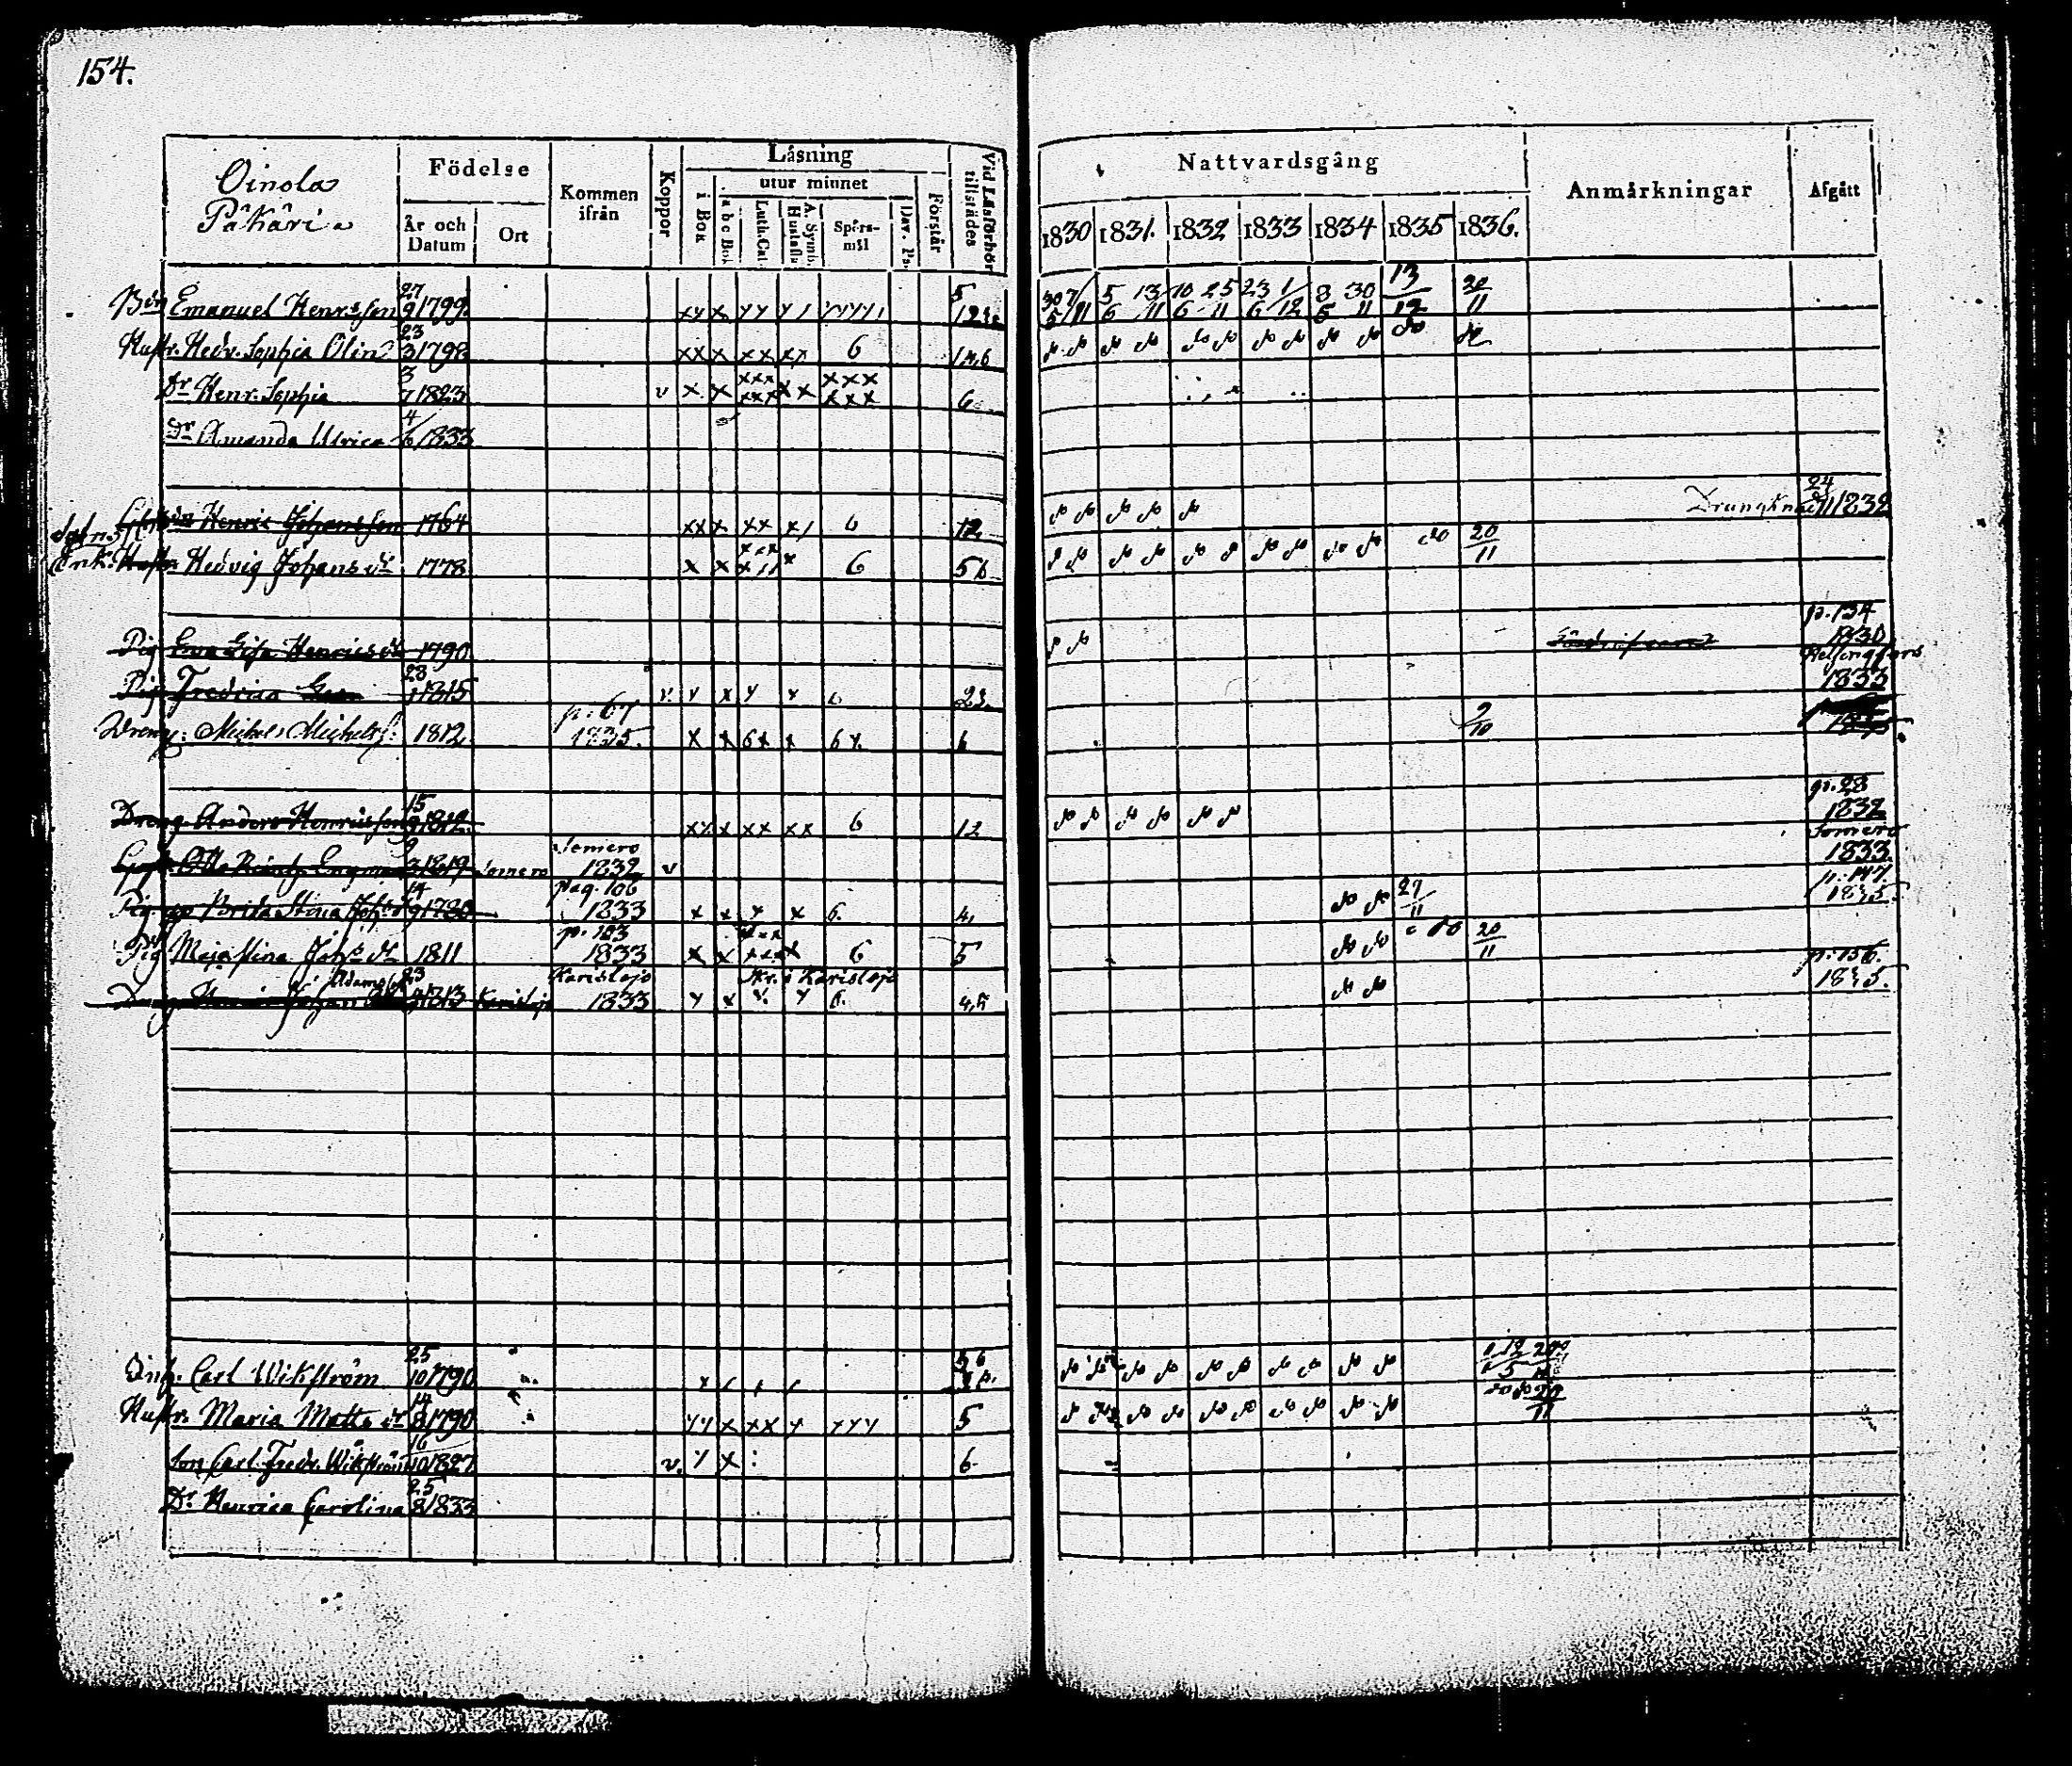 154.
Oinola
Påkäri
Födelse
År och Datum
Ort
Kommen ifrån
Koppor
Läsning
i Bok
utur minnet
a b c Bok
Luth. Cat.
A. Symb. Hustafla
Spörsmål
Dav. Ps.
Förstår
Vid Läsförhör tillstädes
Nattvardsgång
1830 1831. 1832 1833 1834 1835 1836.
Anmärkningar
Afgått
Bdn Emanuel Henrsson 27/9 1799. 30/5 7/11 5/6 13/11 10/6 25/11 23/6 1/12 8/6 30/11 13/12 20/11
Hustr. Hedr. Sophia Olin 23/3 1798 xxx xx xx 6 do do do do do do do do do do do do
Dr Henr. Sophia 3/7 1823 v x x xxx xxx x x xxx xxx 6
Dr Amanda Ulrica 4/6 1833
Henric Johansson 1764 xx x xx x/ 6 12 do do do do do Drunknad 24/11 1832
Enk. Hustr. Hedvig Johansdr 1778 x x 6 56 do do do do do do do do do do do 20/11
Pig Eva Lisa Henricsdr 1790 do do p. 134 1830
Pig Fredrica 28/1 1815 v x x 23. Helsingfors 1833
Dreng. Michel Michelss. 1812 p. 67 1835. x x 6x x 6x. 6 9/10
Dreng Anders Henricsson 15/9 1812. xx x xx xx 6 12 do do do do do do p. 28 1832
Otto Reinh. Engman 9/3 1819 Somero Somero 1832 v Somero 1833
Pig Brita Stina Johsdr 14/9 1780 pag. 106 1833 x x x x 6. 4, do do 27/11 p. 147 1835.
Pig Maja Stina Johsdr 1811 p. 183 1833 x x xxx x 6 5 do do do 20/11
Dreng Henric Johan Adamss. 23 1813 Karislojo Karislojo 1833 Skr. i Karislojo x x x 6. 4,5 do do p. 156. 1835.
Inh. Carl Wikström 25/10 1790 do do do do do do do do do
Hustr. Maria Mattsdr 14/8 1790 xx x xx x xxx 5 do do do do do do do do do do 20/11
Son Carl Fredr. Wikström 16/10 1827 v. x x 6
Dr Henrica Carolina 25/8 1833